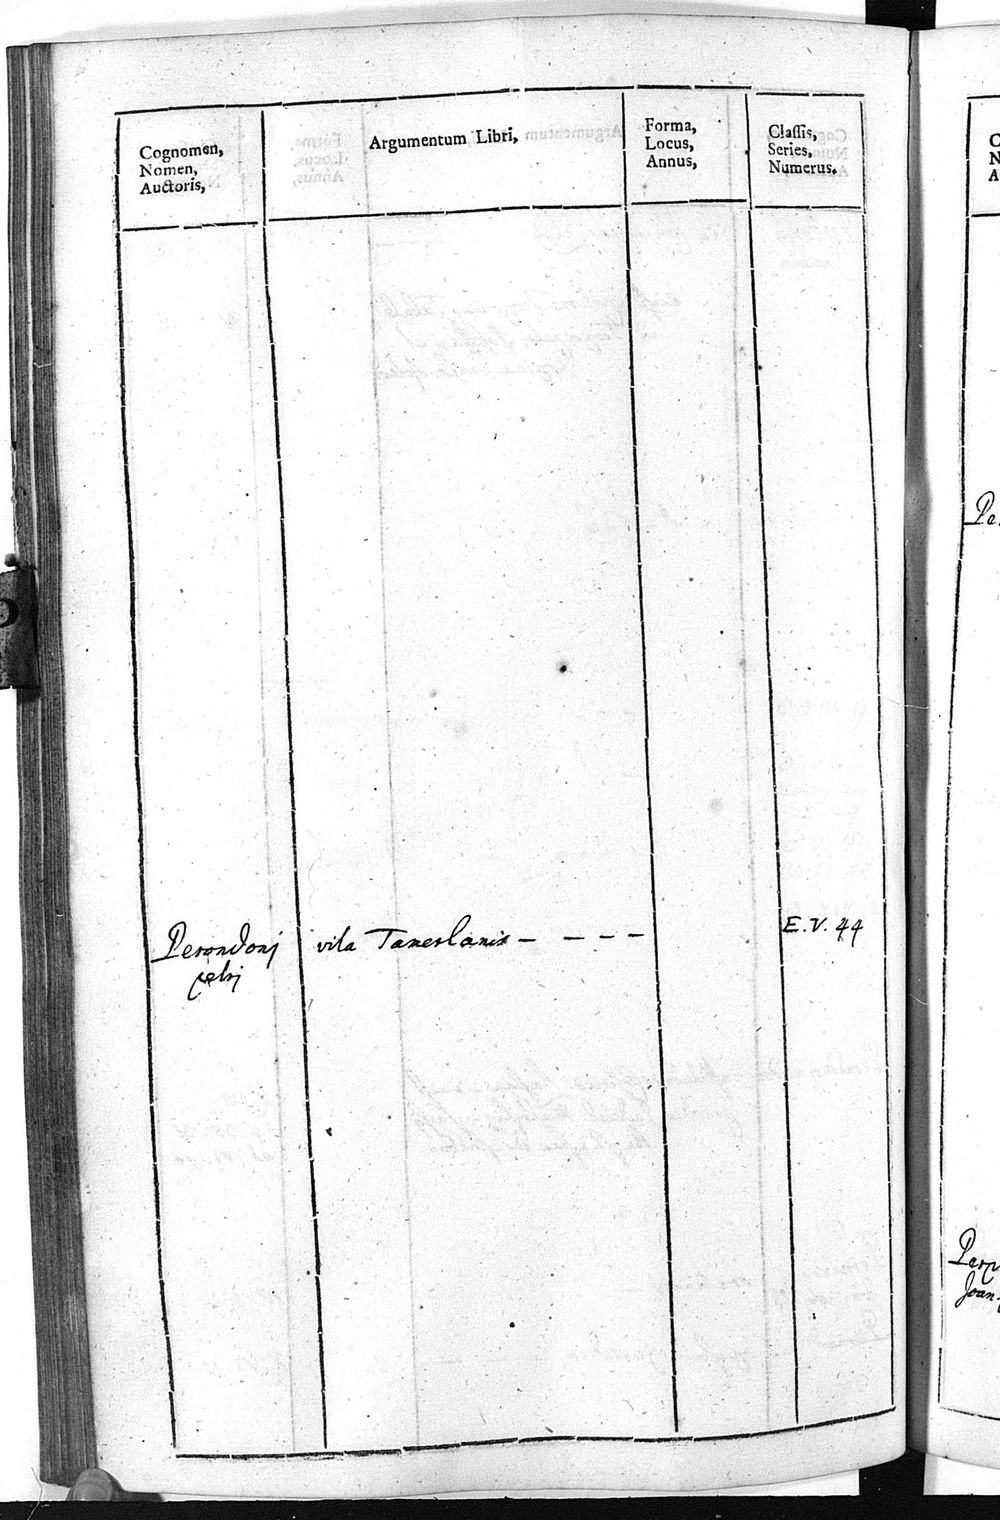 Cognomen,
Nomen,
Auctoris,
Argumentum Libri,
Forma,
Locus,
Annus,
Classis,
Series,
Numerus.
Perondonj
petrj
vita Tamerlanis — — — —
E. V. 44
C
N
A
Pe
Per
Joan-